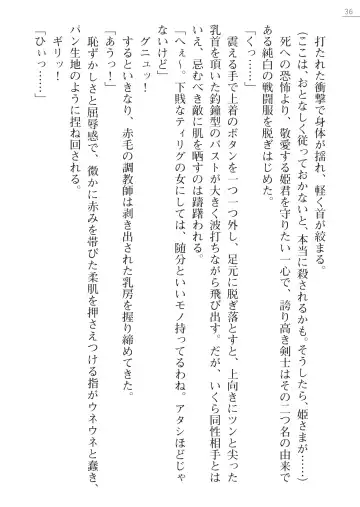 36
打たれた衝撃で身体が揺れ、軽く首が絞まる。
(ここは、おとなしく従っておかないと、本当に殺されるかも。そうしたら、姫さまが……)
死への恐怖より、敬愛する姫君を守りたい一心で、誇り高き剣士はその二つ名の由来で
ある純白の戦闘服を脱ぎはじめた。
「くっ……」
震える手で上着のボタンを一つ一つ外し、足元に脱ぎ落とすと、上向きにツンと尖った
乳首を頂いた釣鐘型のバストが大きく波打ちながら飛び出す。だが、いくら同性相手とは
いえ、忌むべき敵に肌を晒すのは躊躇われる。
「へぇ～。下賎なティリグの女にしては、随分といいモノ持ってるわね。アタシほどじゃ
ないけど」
グニュッ！
するといきなり、赤毛の調教師は剥き出された乳房を握り締めてきた。
「あうっ！」
恥ずかしさと屈辱感で、微かに赤みを帯びた柔肌を押さえつける指がウネウネと蠢き、
パン生地のように捏ね回される。
ギリッ！
「ひぃっ……」